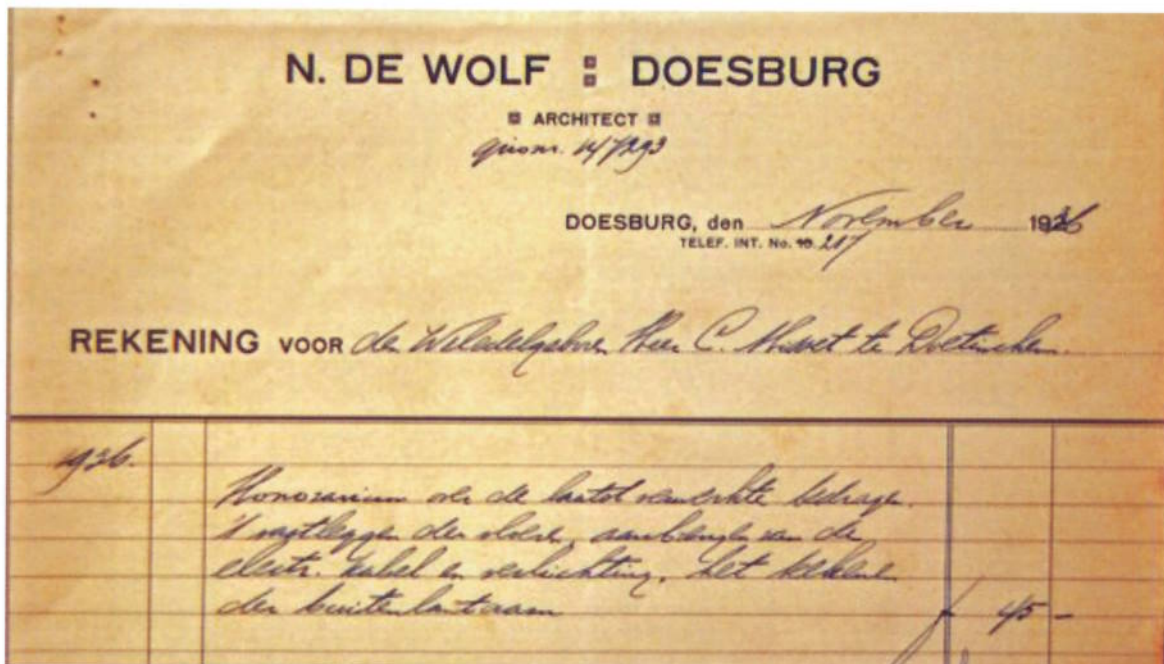 N. DE WOLF :: DOESBURG
ARCHITECT
giron. 147293
DOESBURG, den November 1936
TELEF. INT. No. 10. 217
REKENING VOOR den Weledelgeboren Heer C. Misset te Doetinchem.
1936.
Honorarium over de laatst verwerkte bedragen.
't vastleggen der vloeren, aanbrengen van de
electr. kabel en verlichting, het
der buitenlantaarn f 45 -